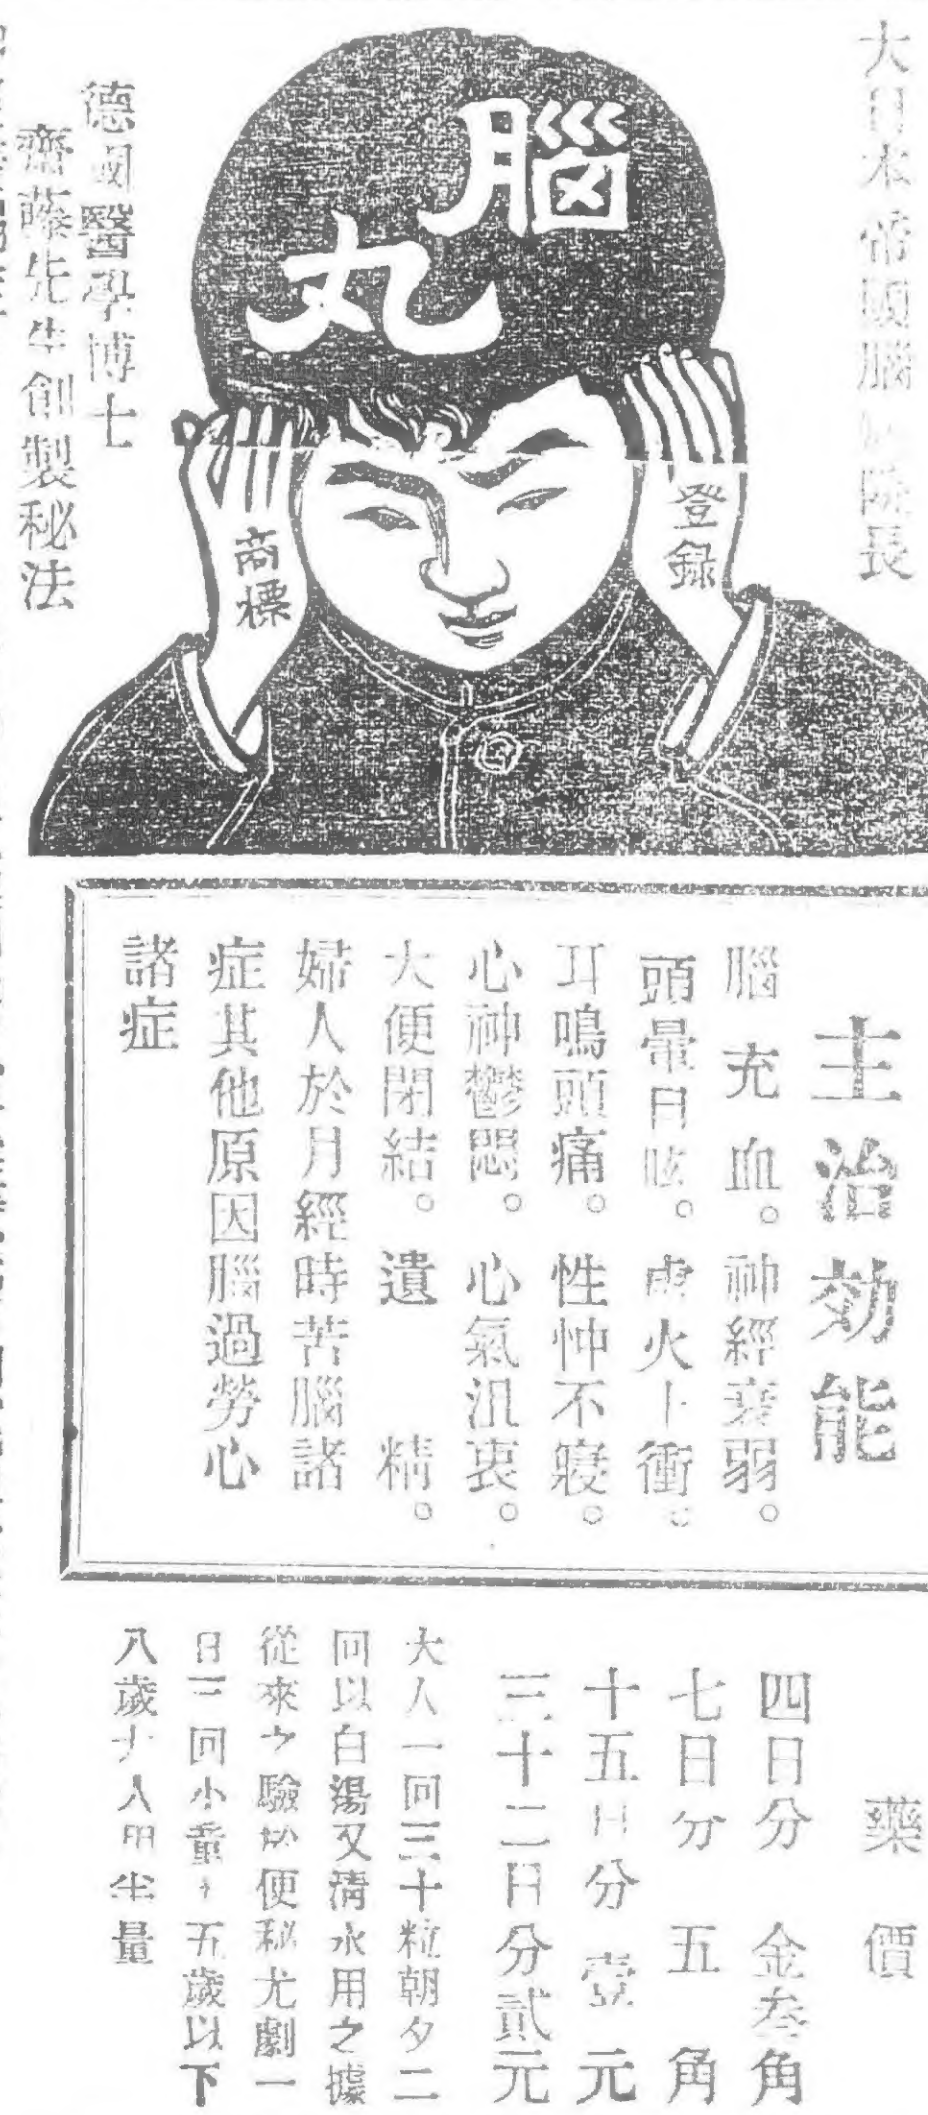 大日本帝國腦病院長
腦丸
登錄
商標
德國醫學博士
齋藤先生創製秘法
主治効能
腦充血。神經衰弱。
頭暈目眩。虛火上衝。
耳鳴頭痛。性忡不寢。
心神鬱悶。心氣沮喪。
大便閉結。遺精。
婦人於月經時苦腦諸
症其他原因腦過勞心
諸症
藥價
四日分 金叁角
七日分 五角
十五日分 壹元
三十二日分貳元
大人一回三十粒朝夕二
回以白湯又清水用之據
從來之驗於便秘尤劇一
日三回小童十五歲以下
八歲大人用半量